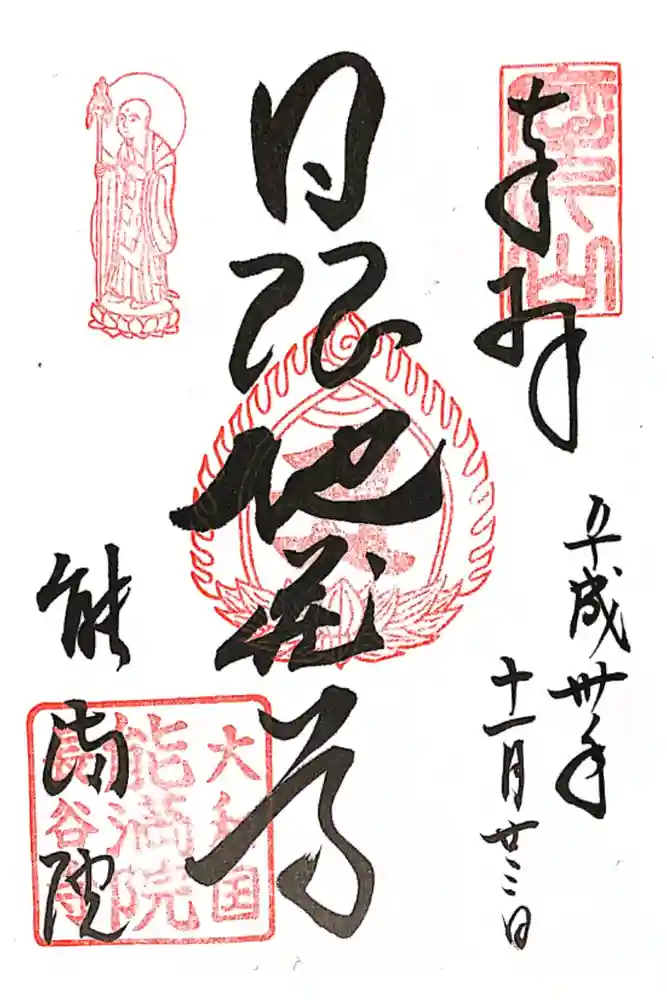 奉拝
平成卅年
十一月廿三日
日限地蔵尊
能満院
大和国
能満院
長谷寺